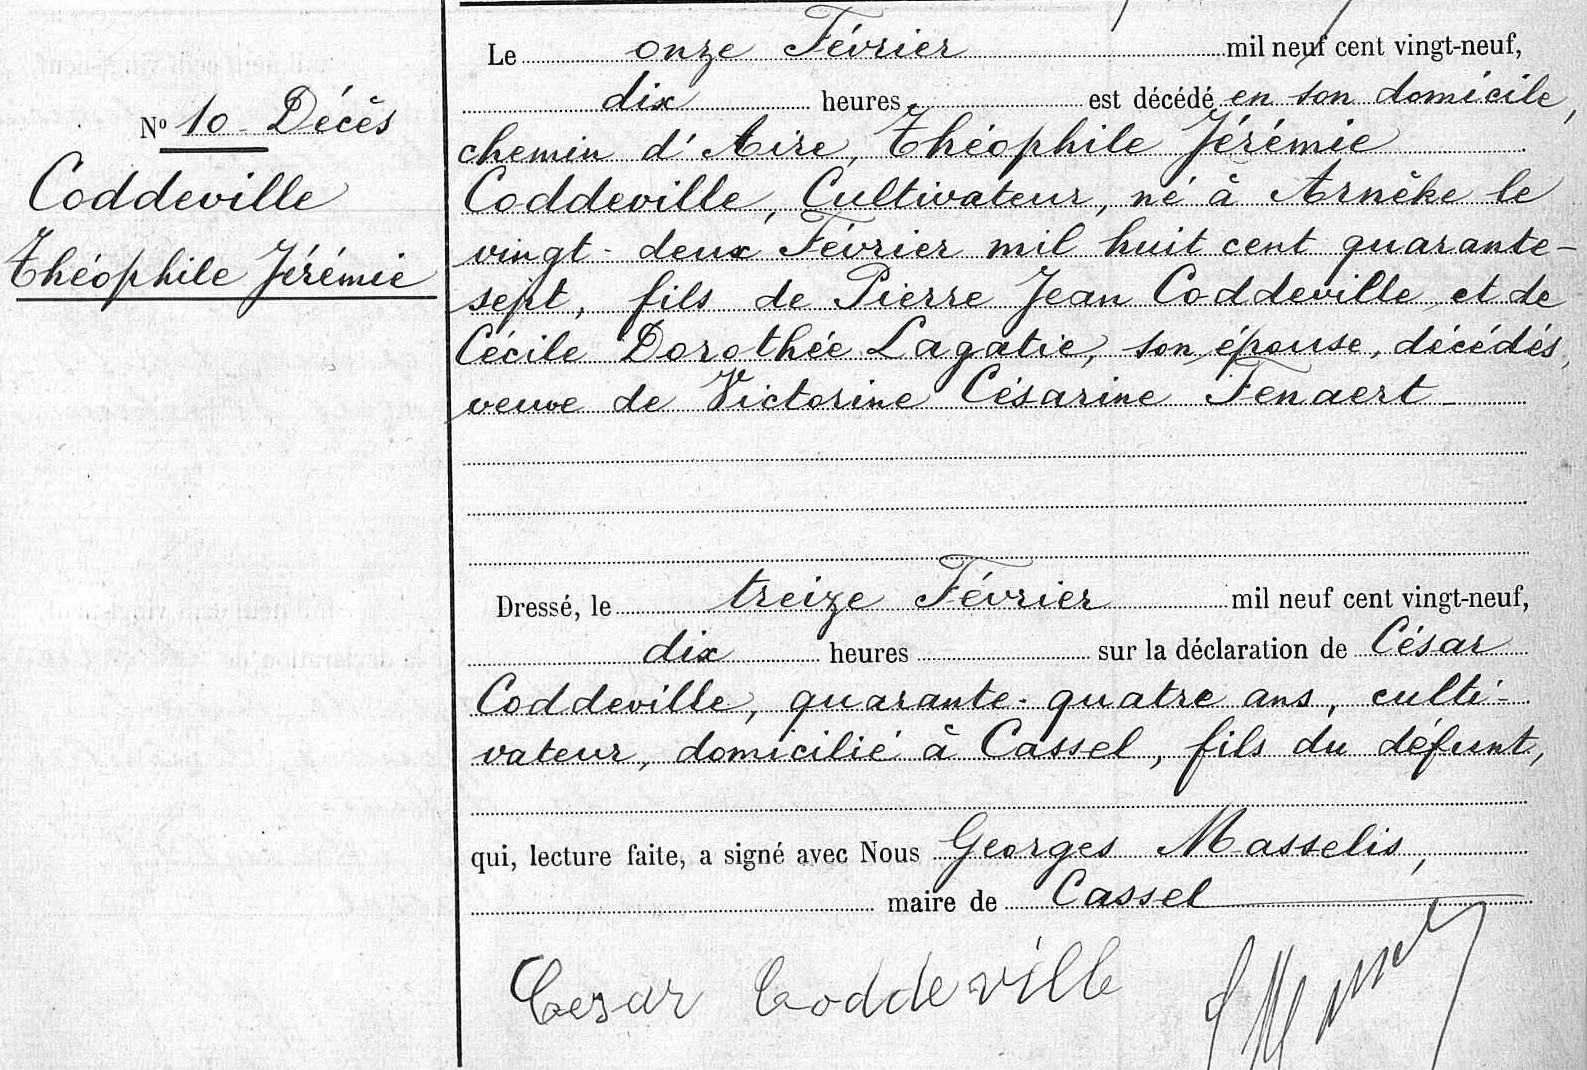 N° 10 - Décès
Coddeville
Théophile Jérémie
Le onze Février mil neuf cent vingt-neuf,
dix heures, est décédé en son domicile,
chemin d'Aire, Théophile Jérémie
Coddeville, Cultivateur, né à Arnèke le
vingt-deux Février mil huit cent quarante-
sept, fils de Pierre Jean Coddeville et de
Cécile Dorothée Lagatie, son épouse, décédés,
veuve de Victorine Césarine Fenaert
Dressé, le treize Février mil neuf cent vingt-neuf,
dix heures sur la déclaration de César
Coddeville, quarante-quatre ans, culti-
vateur, domicilié à Cassel, fils du défunt,
qui, lecture faite, a signé avec Nous Georges Masselis,
maire de Cassel
Cesar Coddeville